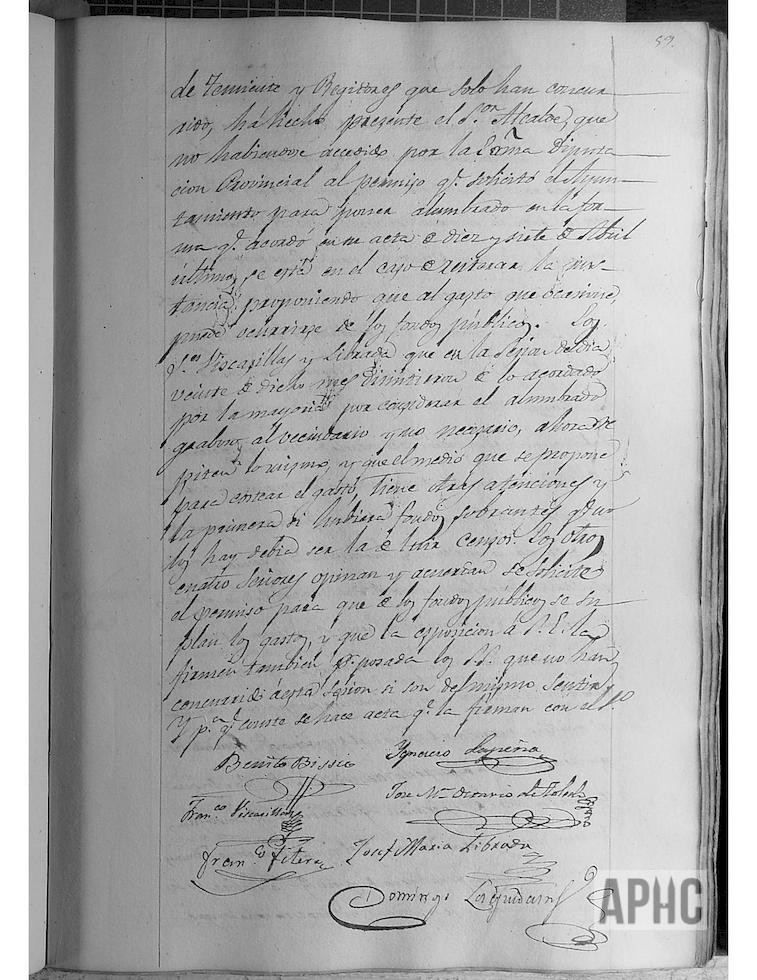 59.
de Teniente y Regidores que solo han concur
rido, há hecho presente el S.or Alcalde, que
no habiendose accedido por la Exma Diputa
cion Provincial al permiso q.e solicitó el Ayun
tamiento para poner alumbrado en la for
ma q.e acordó en su acta de diez y siete de Abril
ultimo, se está en el caso de reiterar la ins
tancia, proponiendo que al gasto que ocasione,
puede ocurrirse de los fondos públicos. Los
S.res Viscasillas y Librada que en la sesion del dia
veinte de dicho mes disintieron de lo acordado
por la mayoria por considerar el alumbrado
graboso al vecindario y no necesario, ahora re
piten lo mismo, y que el medio que se propone
para costear el gasto, tiene otras atenciones y
la primera si hubiera fondos sobrantes q.e no
los hay debia ser la de luir censos. Los otros
cuatro Señores opinan y acuerdan se solicite
el permiso para que de los fondos publicos se su
plan los gastos, y que la exposicion á S.E. la
firmen tambien los S.S. que no han
concurrido á esta sesion si son del mismo sentir.
Y p.a q.e conste se hace acta q.e la firman con el S.º
Benito Bissié Ignacio Lapeña
Fran.co Viscasillas Jose M.a de Toledo
Fran.co Fitera Josef Maria Librada
Domingo
APHC